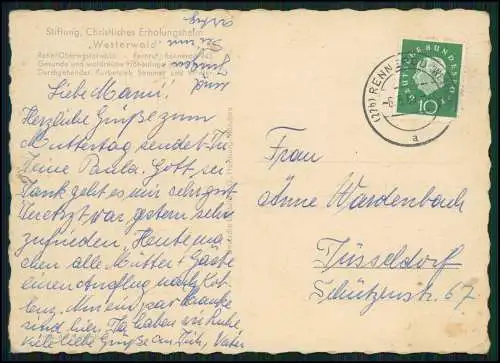 Stiftung, Christliches Erholungsheim
„Westerwald"
Rennerod/Oberwesterwald
Gesunde und waldreiche Höhenlage
Durchgehender Kurbetrieb Sommer und
Liebe Mami!
Herzliche Grüße zum
Muttertag sendet Dir
Deine Paula. Gott sei
Dank geht es mir sehr gut
Der Arzt war gestern sehr
zufrieden. Heute ma-
chen alle Mütter + Gäste
einen Ausflug nach Kob-
lenz. Nur ein paar Kranke
sind hier. Da haben wir Ruhe
viele liebe Grüße an Dich, Vater
und
Jürgen
(27b) RENNEROD
a
DEUTSCHE BUNDESPOST
10
Frau
Änne Wardenbach
Düsseldorf
Schützenstr. 67